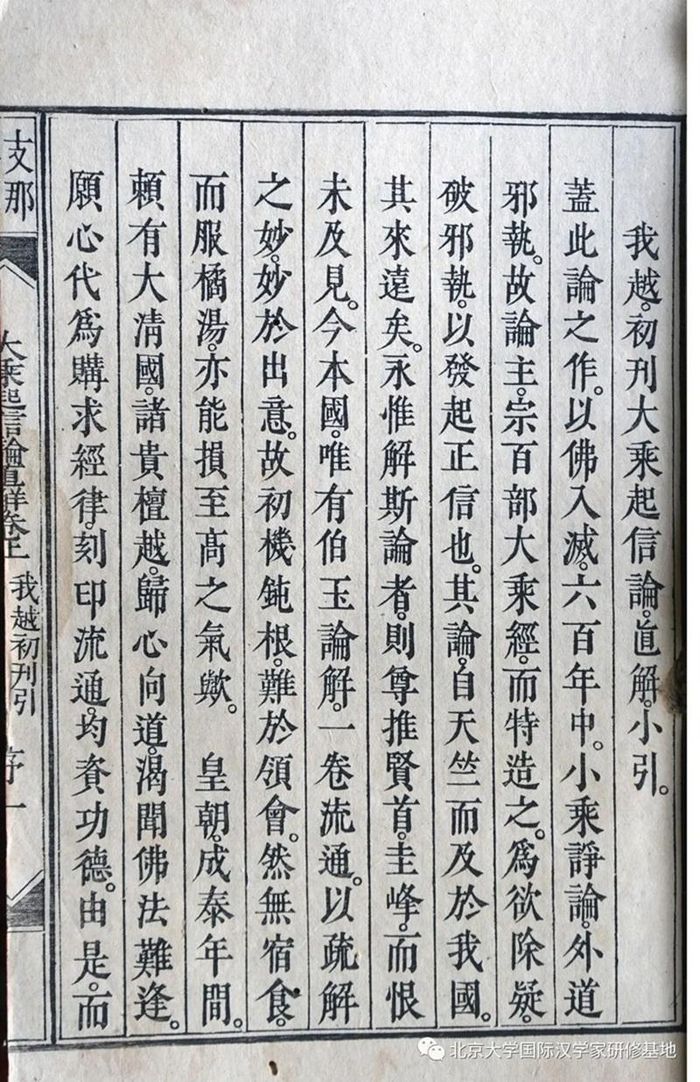 我越。初刊大乘起信論。直解。小引。
蓋此論之作。以佛入滅。六百年中。小乘諍論。外道
邪執。故論主。宗百部大乘經。而特造之。爲欲除疑。
破邪執。以發起正信也。其論。自天竺而及於我國。
其來遠矣。永惟解斯論者。則尊推賢首。圭峰。而恨
未及見。今本國。唯有伯玉論解。一卷流通。以疏解
之妙。妙於出意。故初機鈍根。難於領會。然無宿食。
而服橘湯。亦能損至高之氣歟。　皇朝。成泰年間。
賴有大清國。諸貴檀越。歸心向道。渴聞佛法難逢。
願心代爲購求經律。刻印流通。均資功德。由是。而
支那
大乘起信論直解卷上
我越初刊引
序一
北京大学国际汉学家研修基地